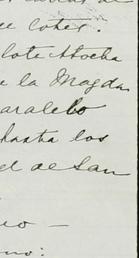 de lotes.
lote Atocha
e la Magda
aralelo
hasta los
el de San
no —